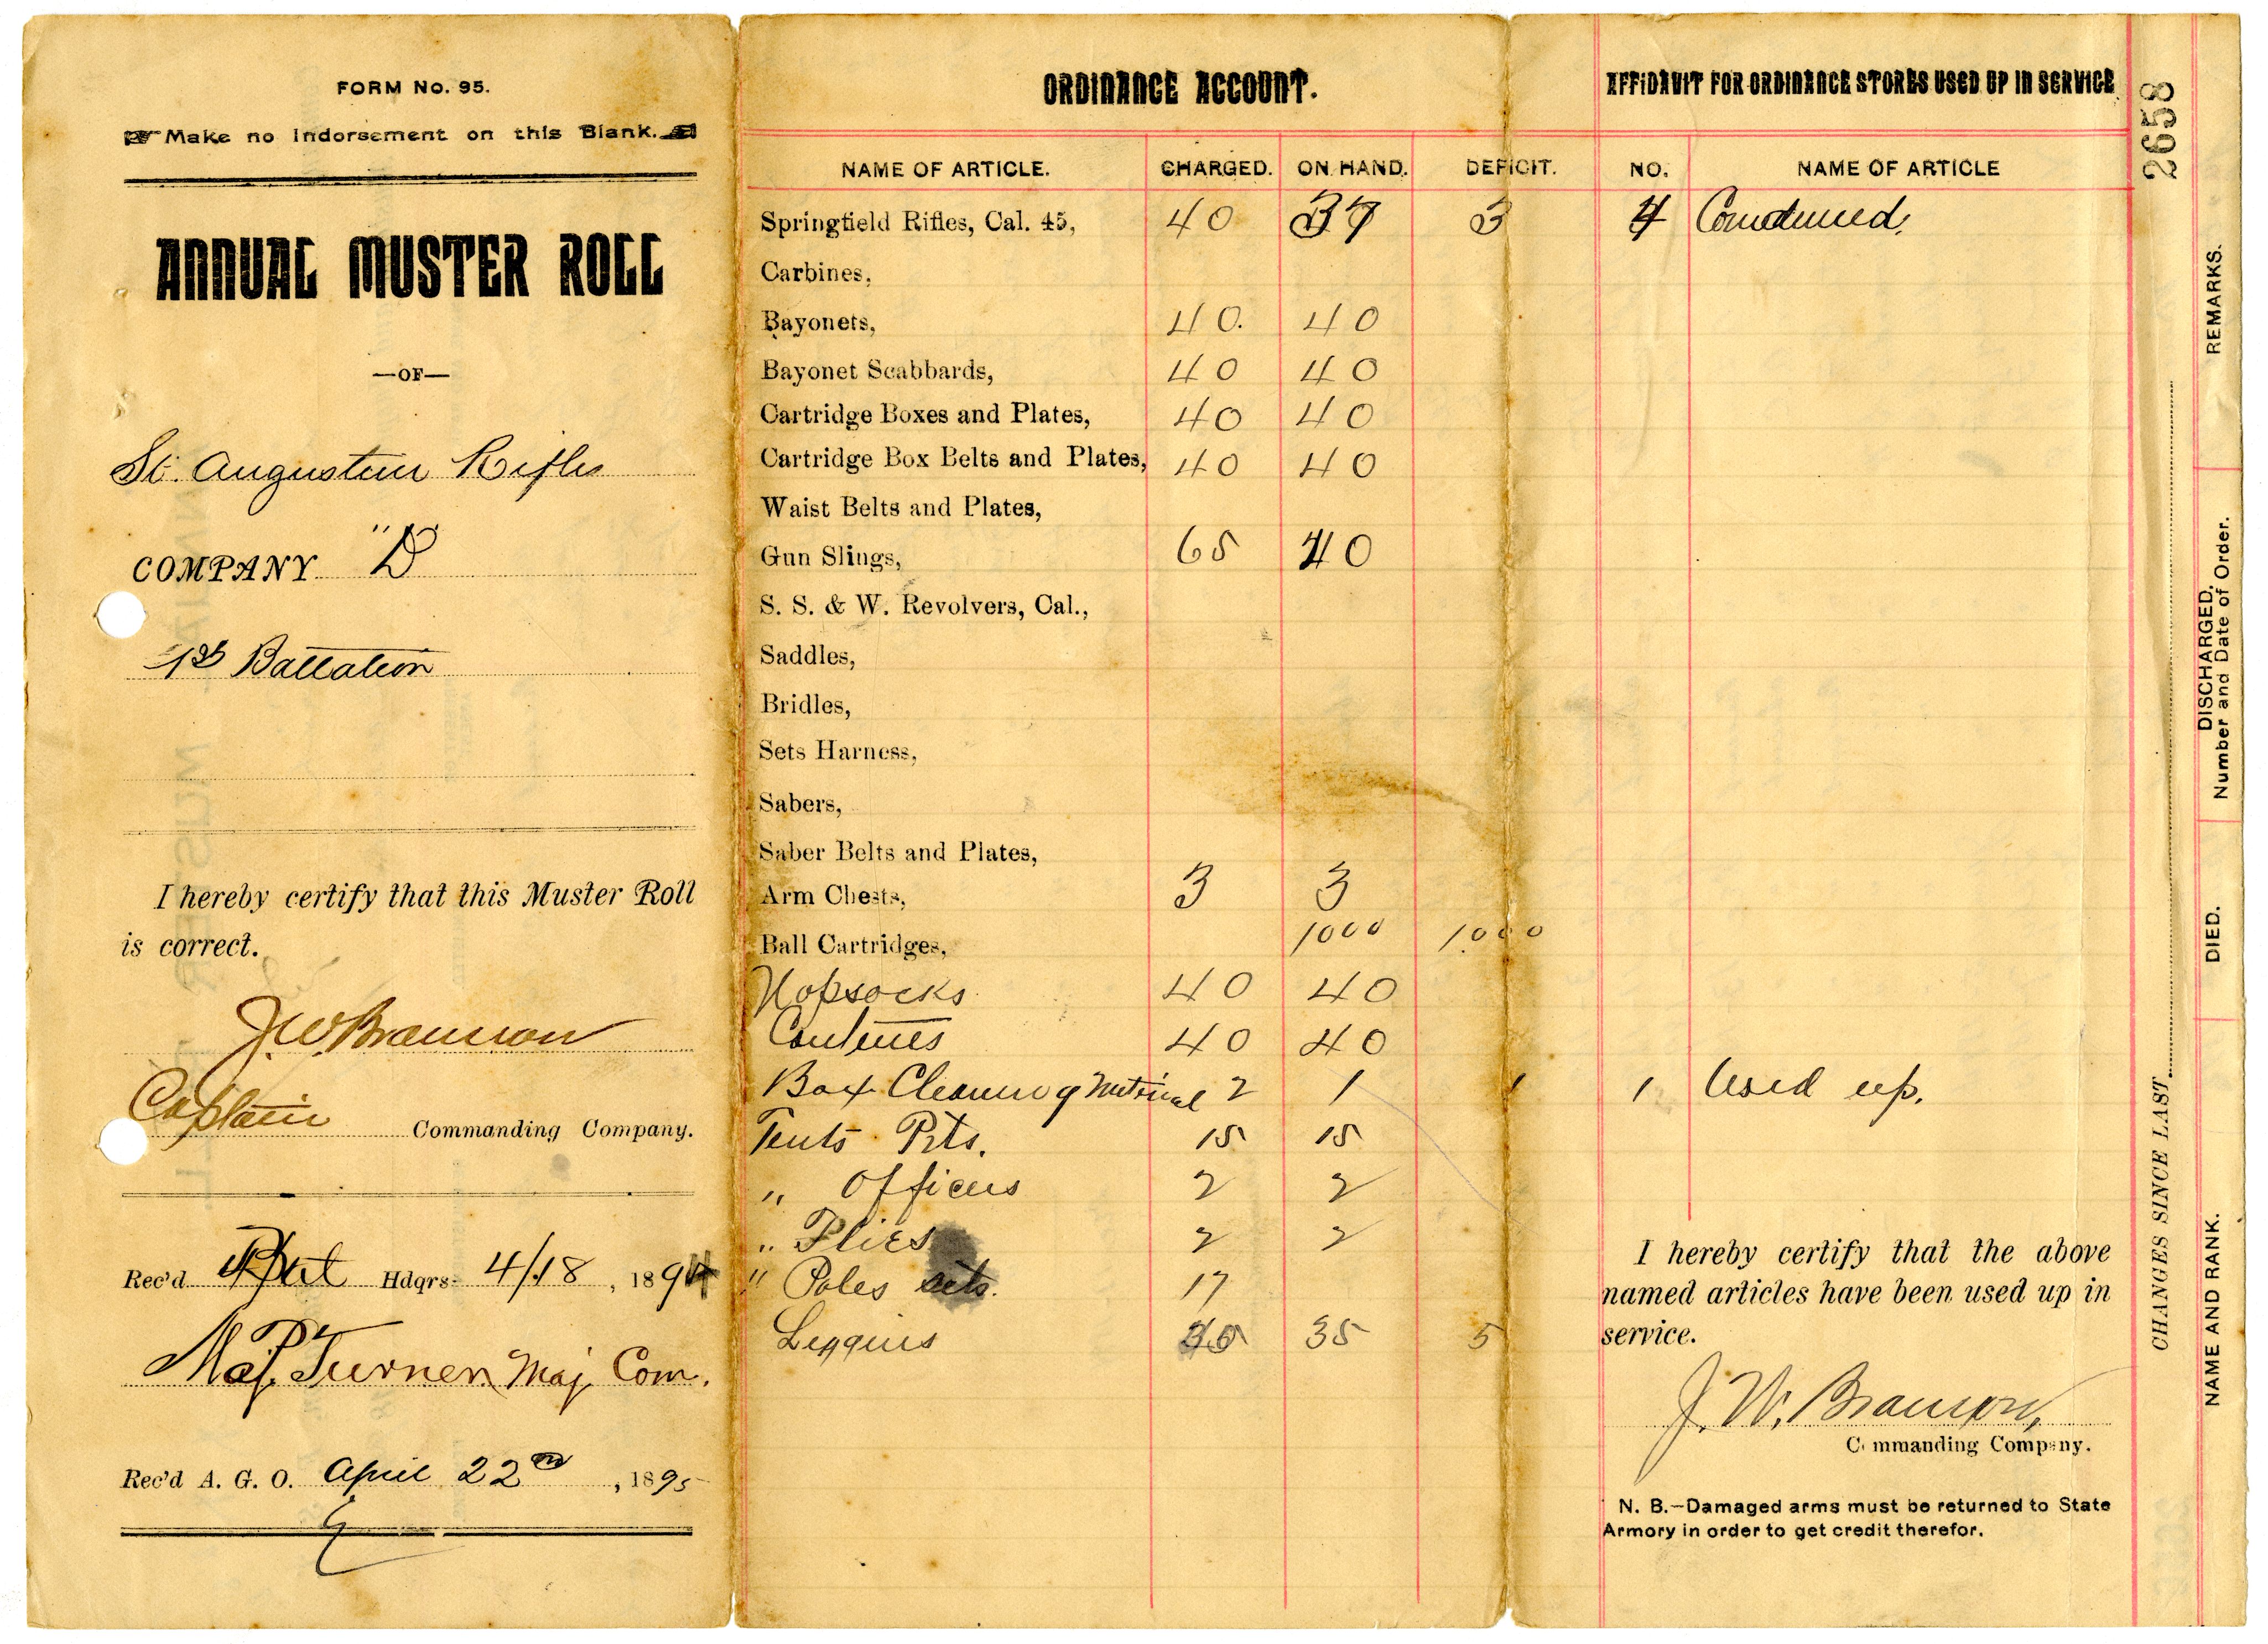 FORM No. 95.
Make no Indorsement on this Blank.
ANNUAL MUSTER ROLL
—OF—
St. Augustine Rifles
COMPANY "D
1st Battalion
I hereby certify that this Muster Roll
is correct.
J. W. Branson
Captain Commanding Company.
Rec'd Hdqrs. 4/18, 1894
Turner, Maj. Com.
Rec'd A. G. O. April 22nd, 1895
ORDINANCE ACCOUNT.
NAME OF ARTICLE. CHARGED. ON HAND. DEFICIT.
Springfield Rifles, Cal. 45, 40 37 3
Carbines,
Bayonets, 40. 40
Bayonet Scabbards, 40 40
Cartridge Boxes and Plates, 40 40
Cartridge Box Belts and Plates, 40 40
Waist Belts and Plates,
Gun Slings, 65 40
S. S. & W. Revolvers, Cal.,
Saddles,
Bridles,
Sets Harness,
Sabers,
Saber Belts and Plates,
Arm Chests, 3 3
Ball Cartridges, 1000 1000
Hopsocks 40 40
Canteens 40 40
Box Cleaning Material 2 1 1
Tents Pvts. 15 15
" Officers 2 2
" Flies 2 2
" Poles sets. 17
Leggins 40 35 5
AFFIDAVIT FOR ORDINANCE STORES USED UP IN SERVICE
NO. NAME OF ARTICLE
4 Condemned.
1 Used up.
I hereby certify that the above
named articles have been used up in
service.
J. W. Branson,
Commanding Company.
N. B.—Damaged arms must be returned to State
Armory in order to get credit therefor.
2658
CHANGES SINCE LAST
REMARKS.
DISCHARGED.
Number and Date of Order.
DIED.
NAME AND RANK.